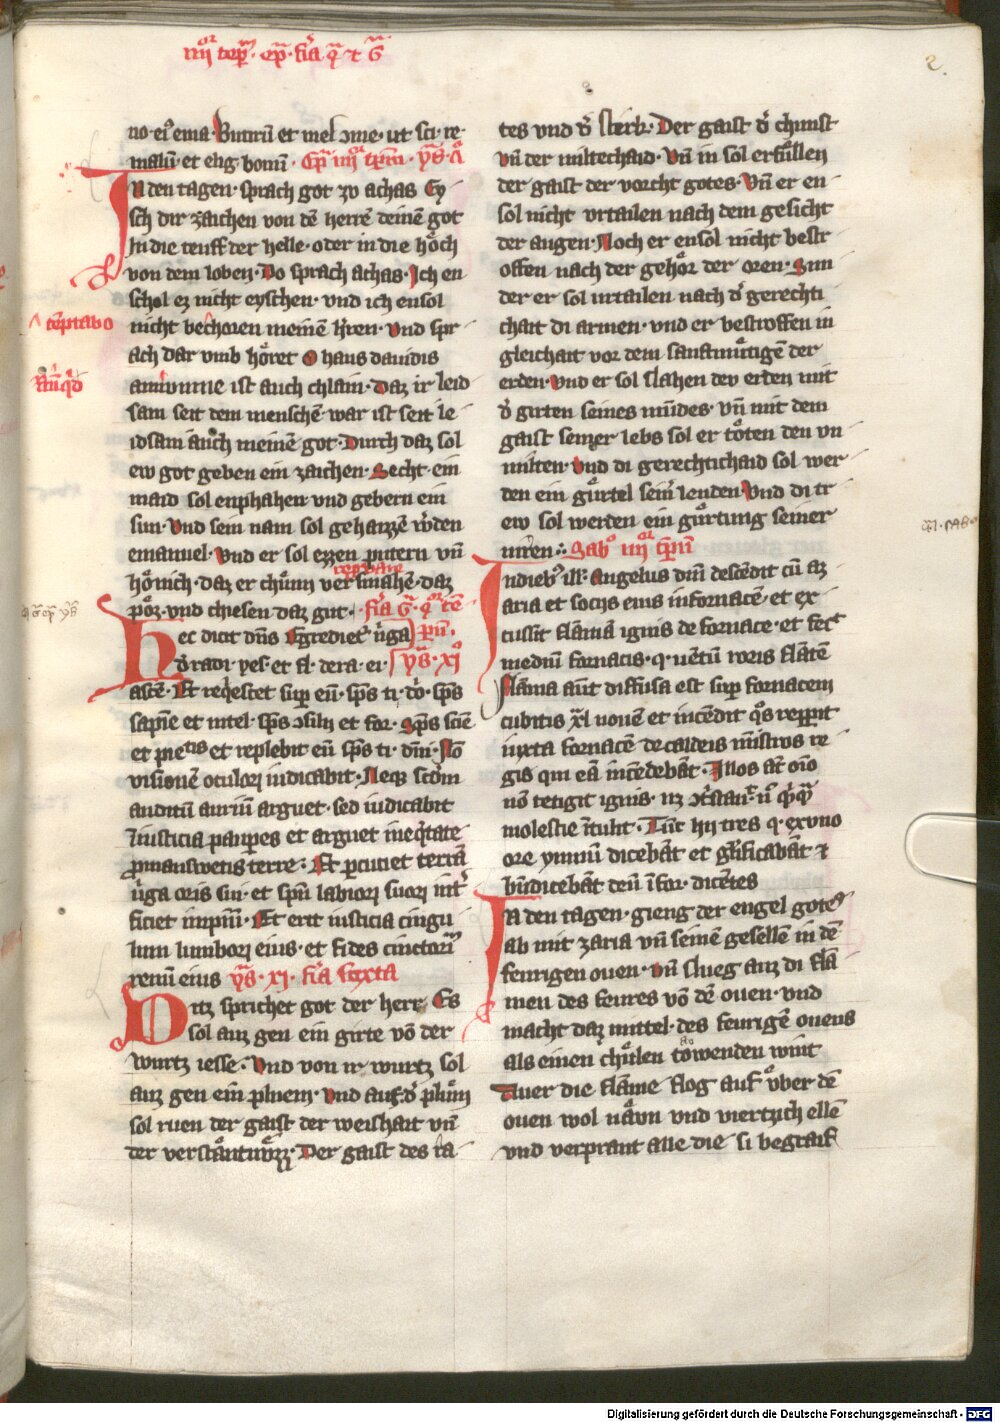 iiij temꝑ· ep̄· fīa q̄ et G̅
2.
no·eiꝰ ema· Butirū et mel ꝯme· ut sci·re·
malū· et elig bonū·
In den tagen· sprach got zv achas Ey
sch dir zaichen von dē herrē deinē got
In die teuff der helle· oder in die hoͤch
von dem loben· Do sprach achas· Ich en
schol ez nicht eyschen· vnd ich ensol
nicht bechoren meinē h̄ren· vnd spr
temptabo
ach dar vmb hoͤret O haus dauidis
ist auch chlain· Daz ir leid
sam seit dem menschē war ist seit le
idsam auch meinē got· Durch daz sol
ew got geben ein zaichen· Secht· ein
maid sol enphahen vnd gebern ein
sun· Vnd sein nam sol gehaizzē w̄den
emanuel· Vnd er sol ezzen putern vn̄
hoͤnich· daz er chuͤnn ver smahē· daz
poͤz· vnd chiesen daz gut·
Hec dicit dn̄s Egrediet᷑ v̄ga
d̓ radi· yes· et fl· de ra· ei·
yͣs· xi
ascē· Et reqͥescet suꝑ eū· sp̄s
sapīe et intel· sp̄s ꝯsilij et for· Sp̄s sciē
et pietis et replebit eū sp̄s ti· dn̄i· Nō
visionē oculoꝝ iudicabit· Neqꝫ scd̄m
auditū auriū arguet· sed iudicabit
Iniusticia pauꝑes et arguet ineq̄tate
ꝓmansuetis terre· Et ꝑcutiet terrā
v̄ga oris sui· et spū labioꝝ suoꝝ int̓
ficiet impiū· Et erit iusticia cingu
lum lumboꝝ eius· et fides cinctoriū
renū eius yͣs· xi· fīa sexta
Ditz sprichet got der herr· Es
sol auz gen ein girte vō der
wurtz iesse· Vnd von ir wurtz sol
auz gen ein pluem· Vnd auf d̓ pluͤm
sol ruen der gaist der weishait vn̄
der verstaͤntnuͤzz· Der gaist des ra
tes vnd d̓ sterk· Der gaist d̓ chunst
vn̄ der miltechaid· Vn̄ in sol erfuͤllen
der gaist der vorcht gotes· Vn̄ er en
sol nicht vrtailen nach dem gesicht
der augen· Noch er ensol nicht bestr
offen nach der gehoͤr der oren· Sun
der er sol urtailen nach d̓ gerechti
chait di armen· vnd er bestroffen in
gleichait vor dem sanftmuͤtigē der
erden· Vnd er sol slahen dev erden mit
d̓ girten seines mūdes· vn̄ mit dem
gaist seinzer lebs sol er toͤten den vn
milten· Vnd di gerechtichaid sol wer
den ein guͤrtel seinr̄ lenden· Vnd di tr
ew sol werden ein guͤrtung seiner
niren·
In dieb᷒ ill· Angelus dn̄i descēdit cū az
aria et socijs eius in fornacē· et ex
cussit flāmā ignis de fornace· et fecᵗ
mediū fornacis· q· uētū roris flātē
Flāma aut̄ diffusa est suꝑ fornacem
iuxta fornacē de caldeis mīstros re
gis qui eā incēdebāt· Illos at̄ oīo
nō tetigit ignis·
molestie ītulit· Tūc hij tres q· ex vno
ore ymnū dicebāt et gl̄ificabāt et
bn̄dicebāt deū ī for· dicētes
In den tagen· gieng der engel gotes
ab mit zaria vn̄ seinē gesellē in dē
feurigen ouen· Vn̄ slueg auz di flā
men des feures vō dē ouen· vnd
macht daz mittel· des feurigē ouens
als einen chuͤlen towenden wint
Auer die flāme flog auf vͤber dē
ouen wol naͤvn vnd viertzich ellē
vnd verprant alle die si begraif
Digitalisierung gefördert durch die Deutsche Forschungsgemeinschaft - DFG